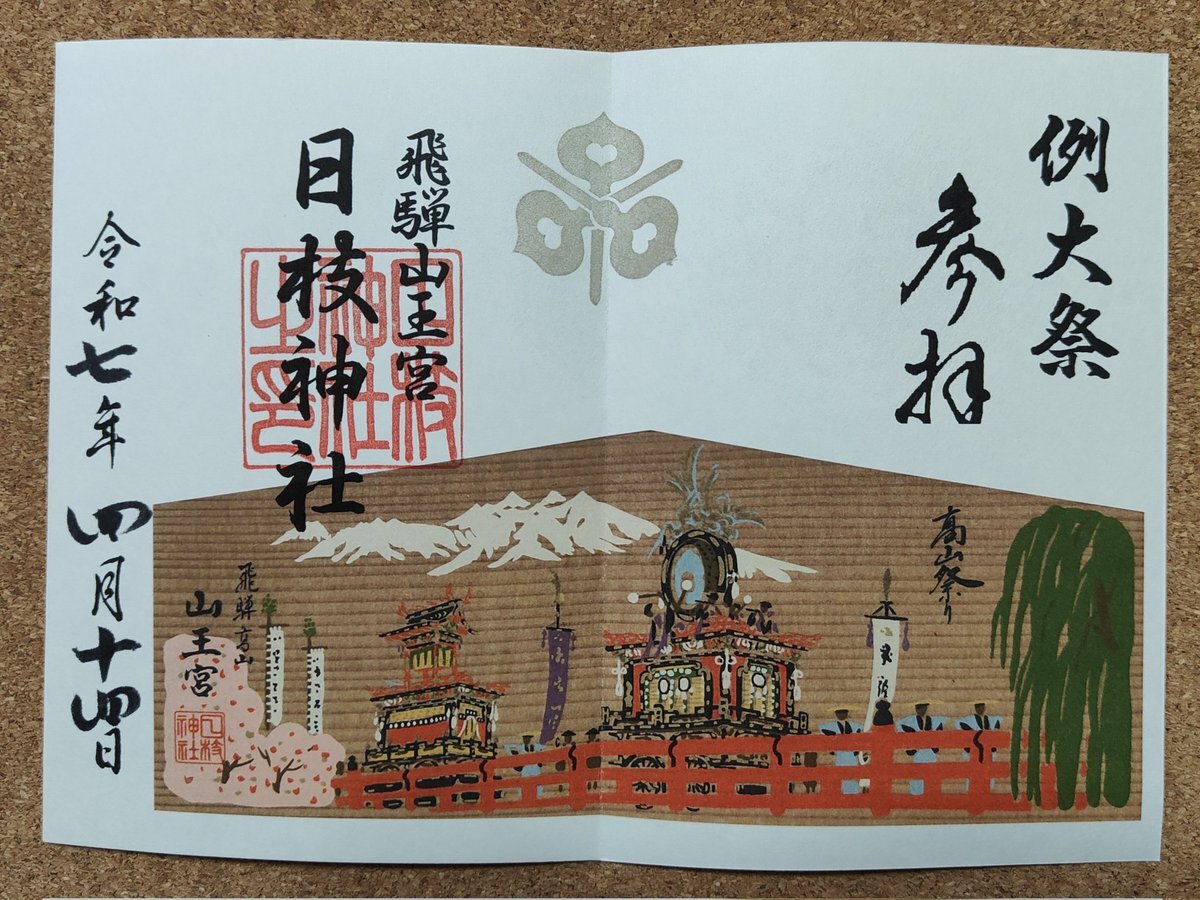 例大祭
参拝
飛騨山王宮
日枝神社
日枝神社之印
令和七年四月十四日
高山祭り
飛騨高山
山王宮
日枝神社